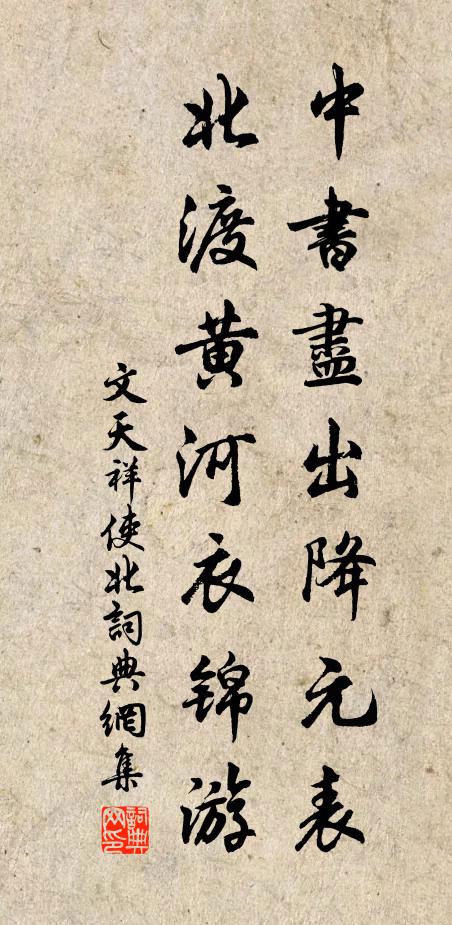 中書盡出降元表
北渡黄河衣锦游
文天祥使北詞典網集
詞典網印